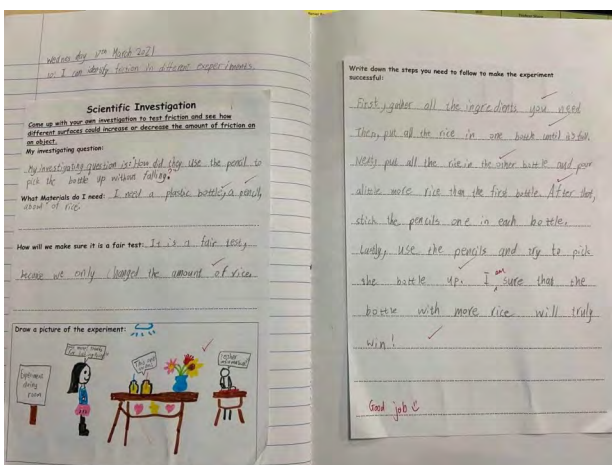 Wednesday March 2021
I can identify friction in different experiments.
Scientific Investigation
Come up with your own investigation to test friction and see how
different surfaces could increase or decrease the amount of friction on
an object.
My investigating question:
My investigating question is: "How did they use the pencil to
pick the bottle up without falling?"
What Materials do I need: I need a plastic bottle, a pencil,
about of rice.
How will we make sure it is a fair test: It is a fair test,
because we only changed the amount of rice.
Draw a picture of the experiment:
room
Write down the steps you need to follow to make the experiment
successful:
First, gather all the ingredients you need
Then, put all the rice in one bottle until its full.
Next, put all the rice in the other bottle and pour
a little more rice than the first bottle. After that,
stick the pencils one in each bottle.
Lastly, use the pencils and try to pick
the bottle up. I am sure that the
bottle with more rice will truly
win!
Good job